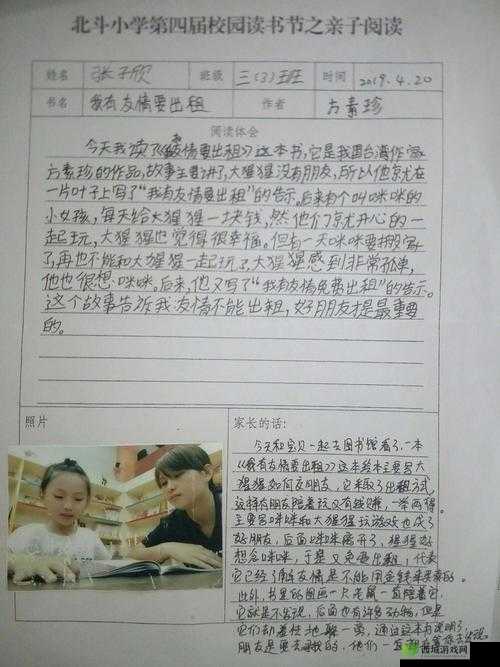 北斗小学第四届校园读书节之亲子阅读
姓名 张子欣 班级 三(3)班 时间 2019.4.20
书名 我有友情要出租 作者 方素珍
阅读体会
今天我读了《友情要出租》这本书,它是我国台湾作家
方素珍的作品,故事主要讲了,大猩猩没有朋友,所以他就在
一片叶子上写了“我有友情要出租”的告示。后来有个叫咪咪的
小女孩,每天给大猩猩一块钱,然他们就开心的一
起玩,大猩猩也觉得很幸福。但有一天咪咪要搬家
了,再也不能和大猩猩一起玩了,大猩猩感到非常孤单,
他也很想咪咪。后来,他又写了“我有友情免费出租”的告示。
这个故事告诉我友情不能出租,好朋友才是最重要
的。
照片
家长的话:
今天和宝贝一起去图书馆看了一本
《我有友情要出租》这本绘本主要写大
猩猩如何交朋友,它采取了出租方式
这样有朋友陪着玩又有钱赚,一举两得。
主要写咪咪和大猩猩玩游戏也成了
好朋友,后面咪咪离开了,猩猩好
想念咪咪,于是又免费出租,代表
它已经了解友情是不能用金钱来买卖的。
此外,书里的图画一只老鼠一直陪着它,
它就是不发现,后面也有许多动物,但是
它们却羞怯地躲一旁,通过这本书说明了,
朋友是要去找的,他们一直都在
西城游戏网